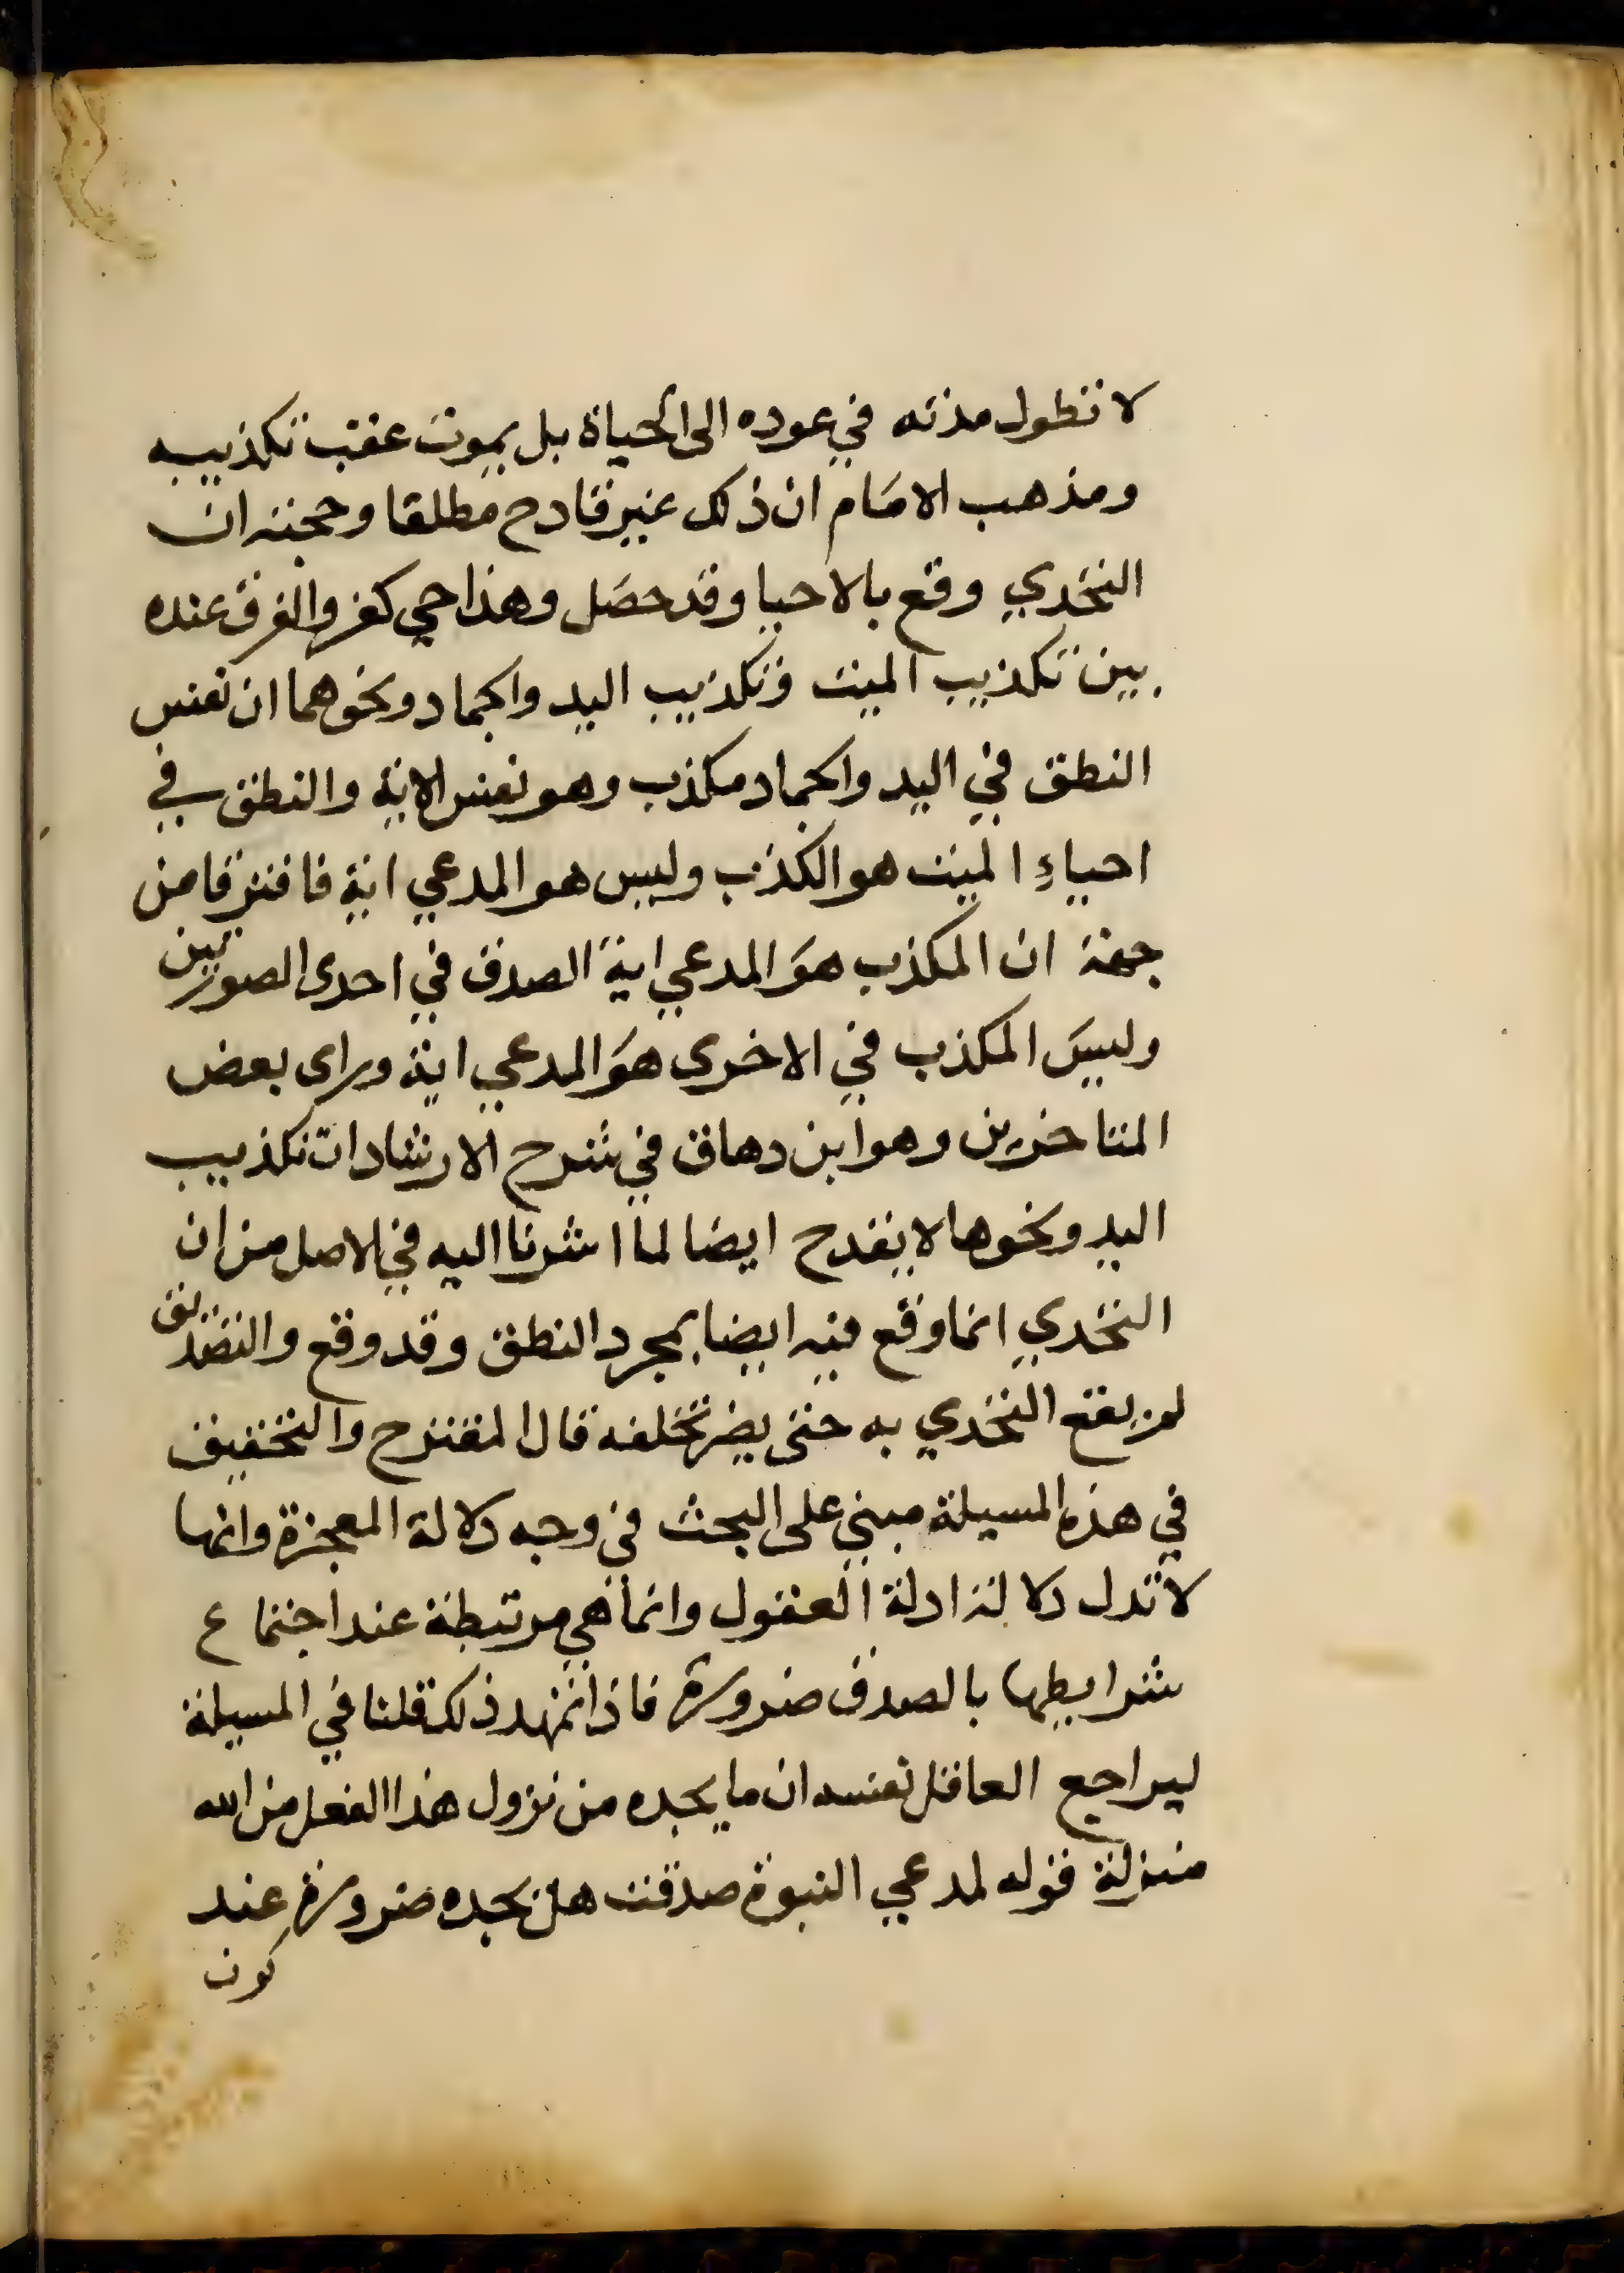 لا تطول مدته في عوده الى الحياة بل يموت عقب تكذيبه
ومذهب الامام ان ذلك غير قادح مطلقا وحجته ان
التحدي وقع بالاحيا وقد حصل وهذا حي كفر والفرق عنده
بين تكذيب الميت وتكذيب اليد والجماد ونحوهما ان نفس
النطق في اليد والجماد مكذب وهو نفس الاية والنطق في
احياء الميت هو الكذب وليس هو المدعي اية فافترقا من
جهة ان المكذب هو المدعي اية الصدق في احدى الصورتين
وليس المكذب في الاخرى هو المدعي اية وراى بعض
المتاخرين وهو ابن دهاق في شرح الارشاد ان تكذيب
اليد ونحوها لا يقدح ايضا لما اشرنا اليه في الاصل من ان
التحدي انما وقع فيه ايضا بمجرد النطق وقد وقع والتصديق
لم يقع التحدي به حتى يضر تخلفه قال المقترح والتحقيق
في هذه المسيلة مبني على البحث في وجه دلالة المعجزة وانها
لا تدل دلالة ادلة العقول وانما هي مرتبطة عند اجتماع
شرايطها بالصدق ضرورة فاذا تمهد ذلك قلنا في المسيلة
ليراجع العاقل نفسه ان ما يجده من نزول هذا الفعل من الله
منزلة قوله لمدعي النبوة صدقت هل يجده ضرورة عند
كون